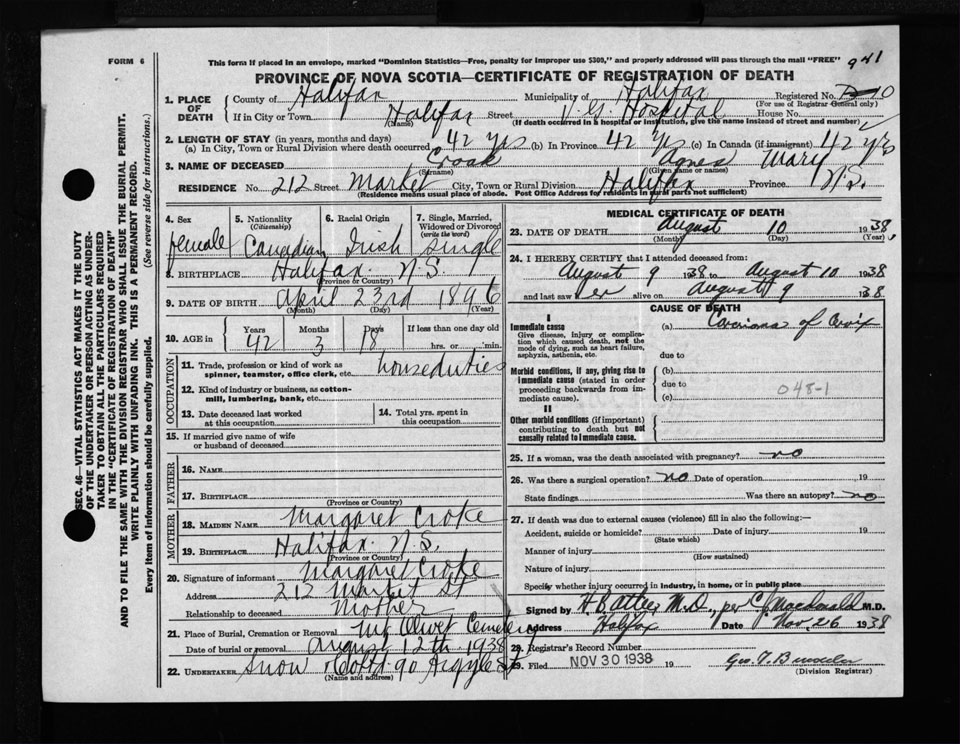 FORM 6
This form if placed in an envelope, marked "Dominion Statistics—Free, penalty for improper use $300", and properly addressed will pass through the mail "FREE" 941
PROVINCE OF NOVA SCOTIA—CERTIFICATE OF REGISTRATION OF DEATH
1. PLACE OF DEATH County of Halifax Municipality of Halifax Registered No. 10
(For use of Registrar General only)
If in City or Town Halifax Street V. G. Hospital House No.
(Name) (If death occurred in a hospital or institution, give the name instead of street and number)
2. LENGTH OF STAY (in years, months and days)
(a) In City, Town or Rural Division where death occurred 42 yrs (b) In Province 42 yrs (c) In Canada (if immigrant) 42 yrs
3. NAME OF DECEASED Croak Agnes Mary
(Surname) (Given name or names)
RESIDENCE No. 212 Street Market City, Town or Rural Division Halifax Province N.S.
(Residence means usual place of abode. Post Office Address for residents in rural parts not sufficient)
4. Sex 5. Nationality (Citizenship) 6. Racial Origin 7. Single, Married, Widowed or Divorced (write the word)
female Canadian Irish single
8. BIRTHPLACE Halifax N.S.
(Province or Country)
9. DATE OF BIRTH April 23rd 1896
(Month) (Day) (Year)
10. AGE in Years Months Days If less than one day old
42 3 18 hrs. or min.
OCCUPATION
11. Trade, profession or kind of work as spinner, teamster, office clerk, etc. houseduties
12. Kind of industry or business, as cotton-mill, lumbering, bank, etc.
13. Date deceased last worked at this occupation
14. Total yrs. spent in this occupation
15. If married give name of wife or husband of deceased
FATHER
16. NAME
17. BIRTHPLACE
(Province or Country)
MOTHER
18. MAIDEN NAME Margaret Croke
19. BIRTHPLACE Halifax N.S.
(Province or Country)
20. Signature of informant Margaret Croke
Address 212 Market St
Relationship to deceased Mother
21. Place of Burial, Cremation or Removal Mt Olivet Cemetery
Date of burial or removal August 12th 1938
22. UNDERTAKER Snow & Co Ltd 90 Argyle St
(Name and address)
MEDICAL CERTIFICATE OF DEATH
23. DATE OF DEATH August 10 1938
(Month) (Day) (Year)
24. I HEREBY CERTIFY that I attended deceased from:
August 9 1938 to August 10 1938
and last saw her alive on August 9 1938.
CAUSE OF DEATH
I
Immediate cause (a) Carcinoma of Cervix
Give disease, injury or complication which caused death, not the mode of dying, such as heart failure, asphyxia, asthenia, etc.
due to
Morbid conditions, if any, giving rise to immediate cause (stated in order proceeding backwards from immediate cause).
(b)
due to
(c) 048-1
II
Other morbid conditions (if important) contributing to death but not causally related to immediate cause.
25. If a woman, was the death associated with pregnancy? no
26. Was there a surgical operation? no Date of operation 19
State findings Was there an autopsy? no
27. If death was due to external causes (violence) fill in also the following:—
Accident, suicide or homicide? Date of injury 19
(State which)
Manner of injury
(How sustained)
Nature of injury
Specify whether injury occurred in industry, in home, or in public place
Signed by H B Atlee M.D., per C J Macdonald M.D.
Address Halifax Date Nov. 26 1938
28. Registrar's Record Number
29. Filed NOV 30 1938 19
(Division Registrar)
SEC. 46—VITAL STATISTICS ACT MAKES IT THE DUTY
OF THE UNDERTAKER OR PERSON ACTING AS UNDER-
TAKER TO OBTAIN ALL THE PARTICULARS REQUIRED
IN THE "CERTIFICATE OF REGISTRATION OF DEATH"
AND TO FILE THE SAME WITH THE DIVISION REGISTRAR WHO SHALL ISSUE THE BURIAL PERMIT.
WRITE PLAINLY WITH UNFADING INK. THIS IS A PERMANENT RECORD.
Every item of information should be carefully supplied. (See reverse side for instructions.)